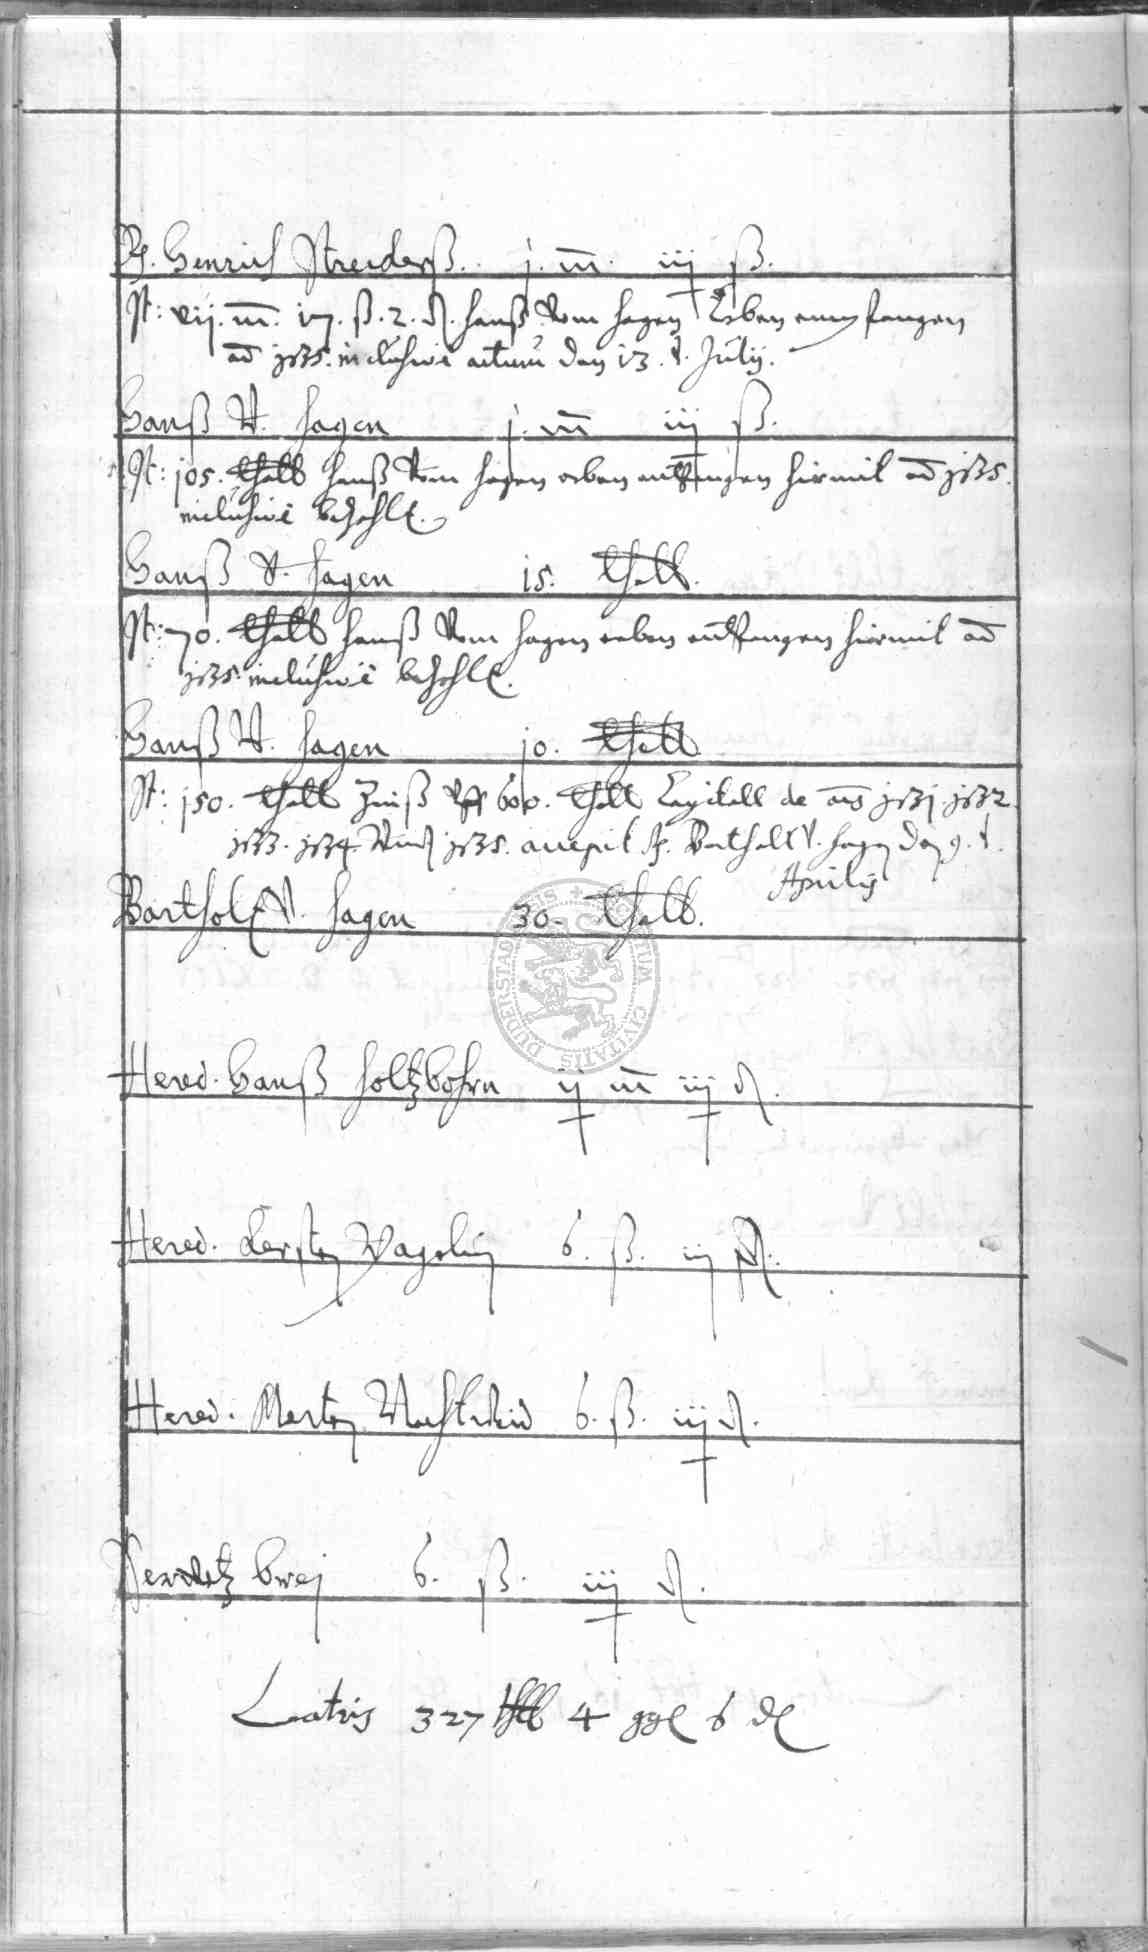 H. Henrich Streiderß. j. m. iij ß.
It: vij. m. iij. ß. 2. d. Hanß vom Hagen Erben empfangen
ad 1635. inclusivè actum den 13. t. Julij.
Hanß V. Hagen j. m iij ß.
It: 105. thall Hanß vom Hagen erben entfangen hirmit ad 1635.
inclusivè bezahlt.
Hanß V. Hagen 15. thall.
It: 70. thall Hanß vom Hagen erben entfangen hirmit ad
1635. inclusivè bezahlt.
Hanß V. Hagen 10. thall
It: 150. thall Zinß uff 600. thall Capitall de ais 1631 1632
1633. 1634. Und 1635. accepit H. Barthold V. Hagen den 9. t.
Aprilis
Barthold V. Hagen 30. thall.
DUDERSTADIENSIS CIVITATIS
Hered. Hanß Holtzborn ij m iij d.
Hered. Kersten 6. ß. iij d.
Hered. Merten 6. ß. iij d.
6. ß. iij d.
Latris 327 thll 4 ggl 6 dl